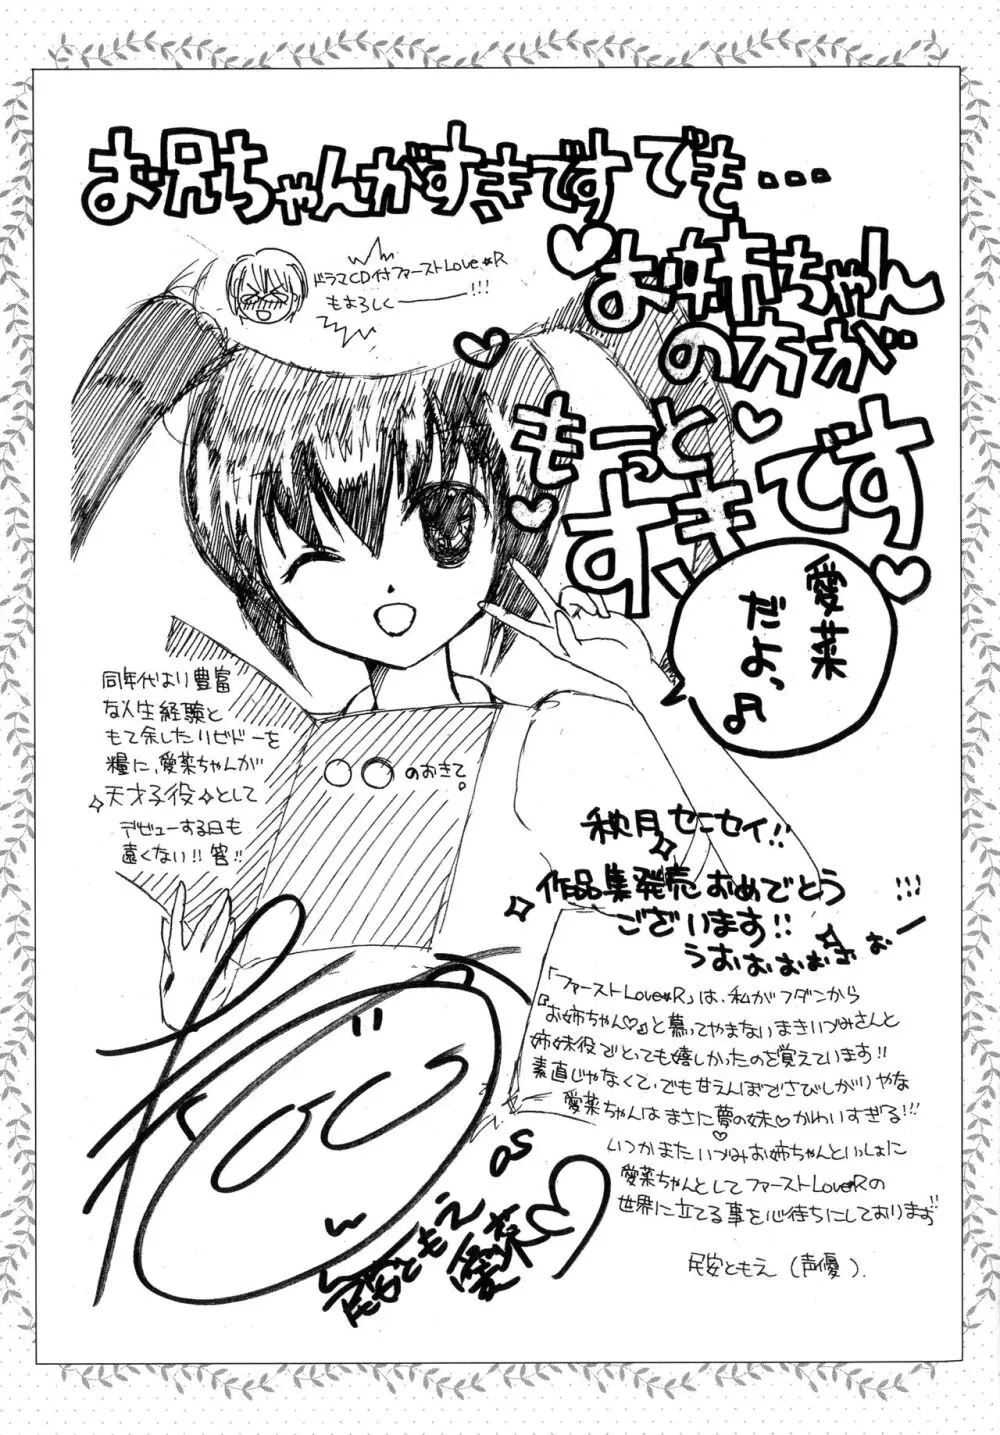 お兄ちゃんがすきですでも・・・
お姉ちゃん
の方が
もーっと
すきです
ドラマCD付ファーストLove★R
もよろしくーーー!!!
愛菜
だよっ♪
同年代より豊富
な人生経験と
もて余したリビドーを
糧に、愛菜ちゃんが
✧天才子役✧として
デビューする日も
遠くない!!筈!!
○○のおきて。
秋月センセイ!!
作品集発売おめでとう
ございます!!
うおぉぉぉぉぉー!!!
「ファーストLove★R」は、私がフダンから
『お姉ちゃん♡』と慕ってやまないまきいづみさんと
姉妹役でとっても嬉しかったのを覚えています!!
素直じゃなくて、でも甘えんぼでさびしがりやな
愛菜ちゃんはまさに夢の妹♡かわいすぎる!!!
いつかまたいづみお姉ちゃんといっしょに
愛菜ちゃんとしてファーストLove★Rの
世界に立てる事を心待ちにしております!!
民安ともえ(声優).
民安ともえ as
愛菜♡